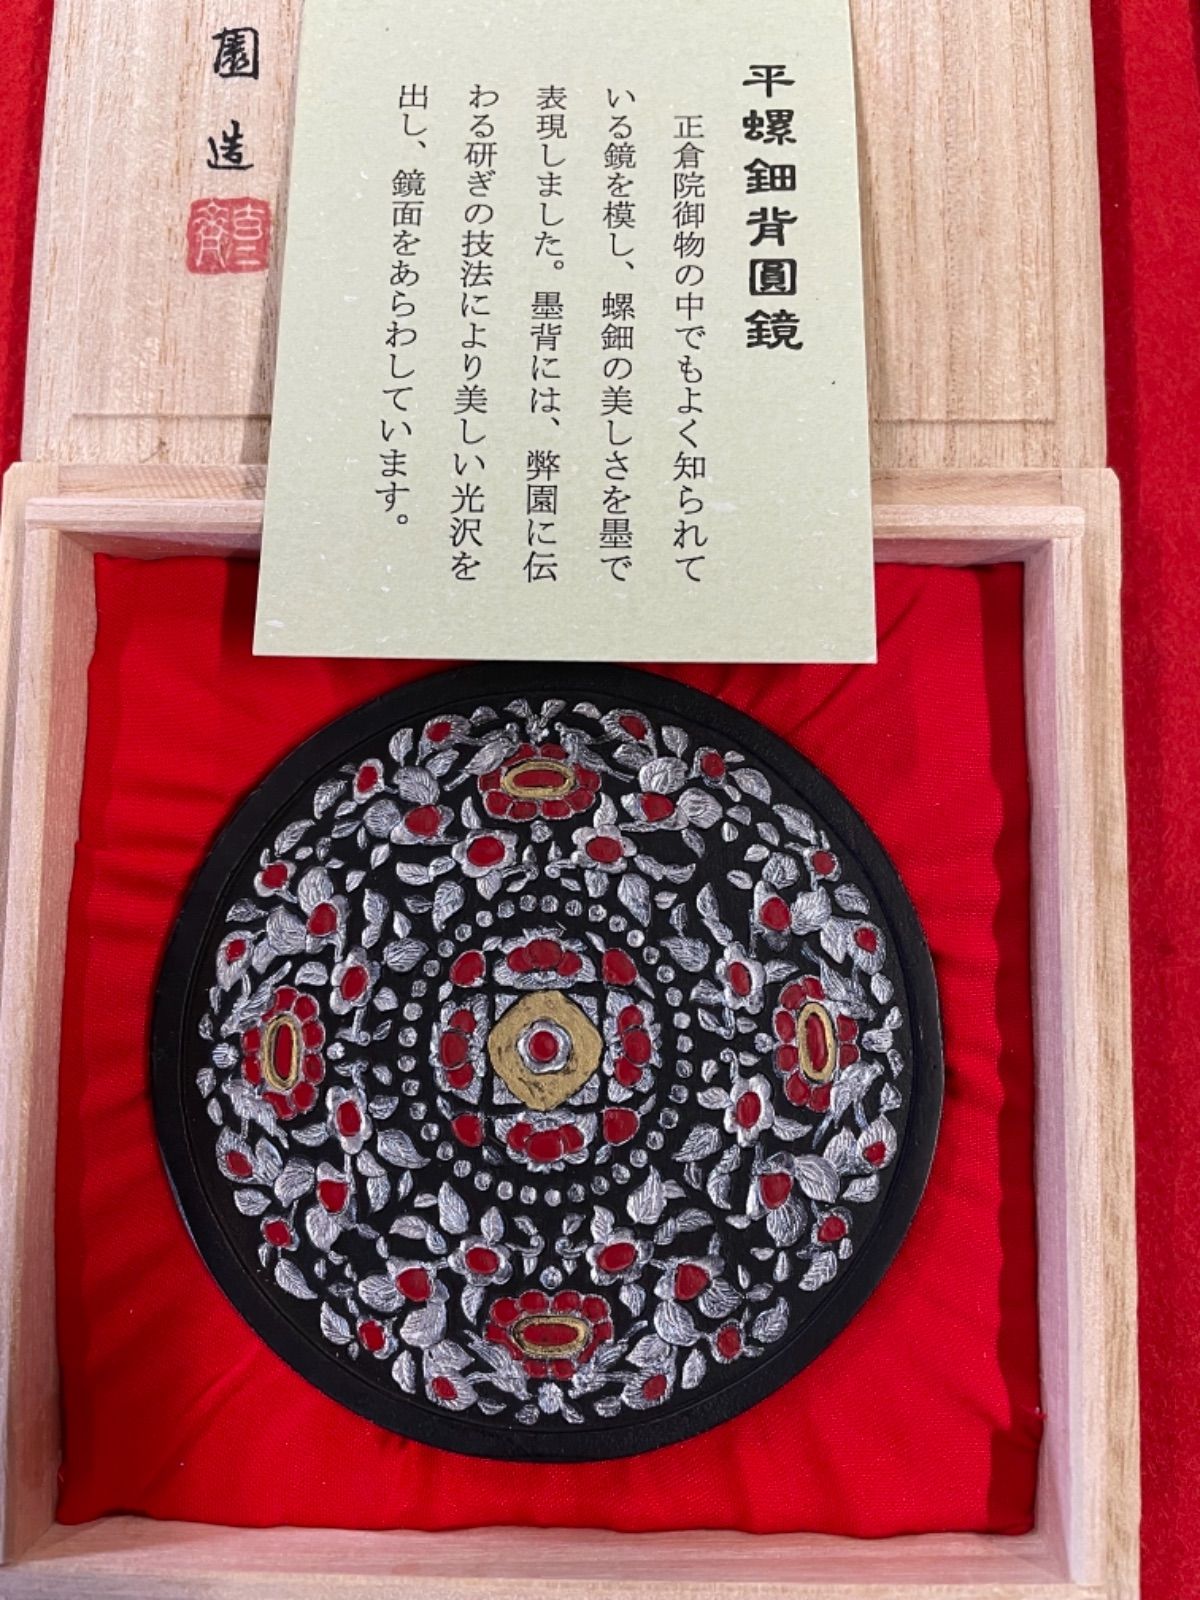 平螺鈿背圓鏡
正倉院御物の中でもよく知られて
いる鏡を模し、螺鈿の美しさを墨で
表現しました。墨背には、弊園に伝
わる研ぎの技法により美しい光沢を
出し、鏡面をあらわしています。
園造